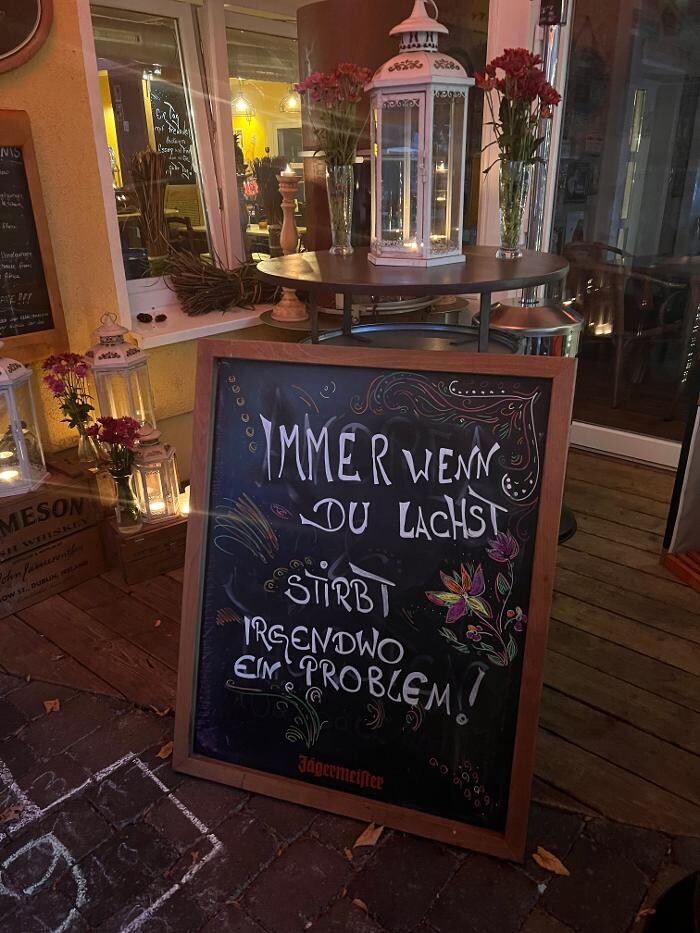 IMMER WENN
DU LACHST
STIRBT
IRGENDWO
EIN PROBLEM!
Jägermeister
MESON
SH WHISKEY
John Jameson
OW ST., DUBLIN, IRELAND